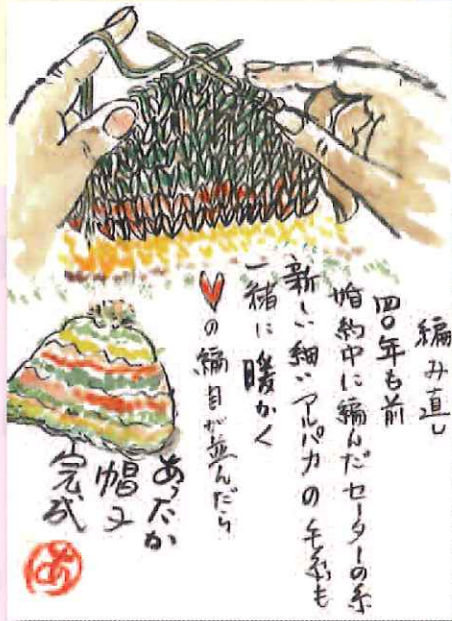 編み直し
四〇年も前
婚約中に編んだセーターの糸
新しい細いアルパカの毛糸も
一緒に暖かく
♥の編目が並んだら
あったか
帽子
完成
あ